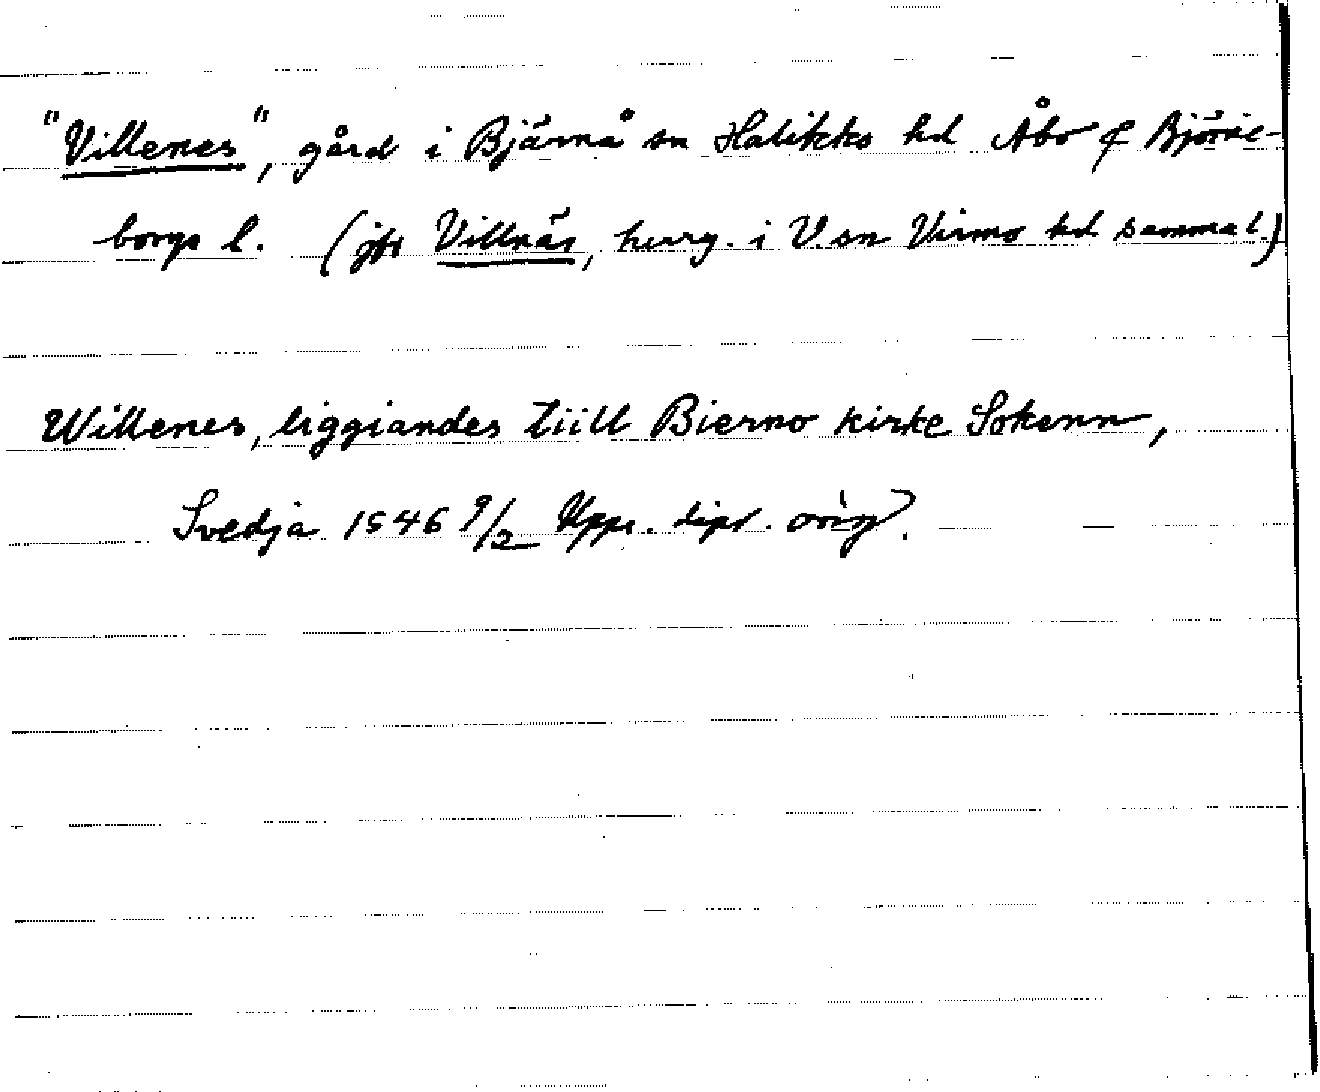 "Villenes", gård i Bjärnå sn Halikko hd Åbo & Björne-
borgs l. (jfr Villnäs, herrg. i V. sn Virmo hd samma l.)
Willenes, liggiandes tiill Bierno kirke Sokenn,
Svedja 1546 9/2 Upps. dipl. orig.